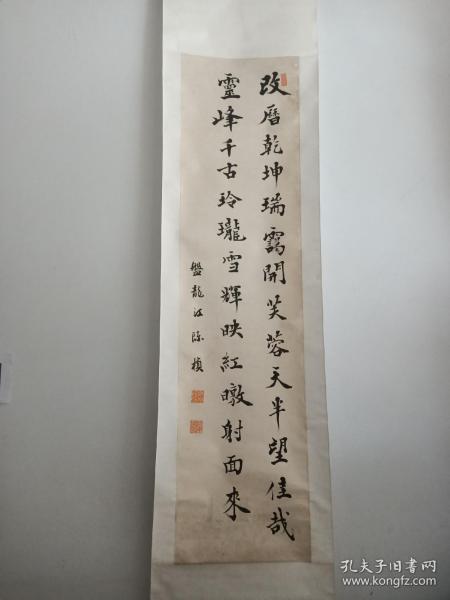 改曆乾坤瑞靄開芙蓉天半望佳哉
靈峰千古玲瓏雪輝映紅暾射面來
盤龍江陈楨
孔夫子旧书网
www.kongfz.com